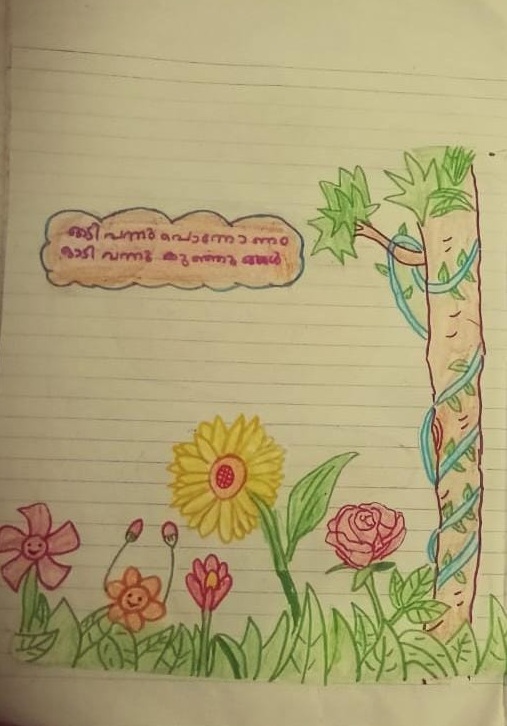 ആടി വന്നു പൊന്നോണം
ഓടി വന്നു കുഞ്ഞുങ്ങൾ